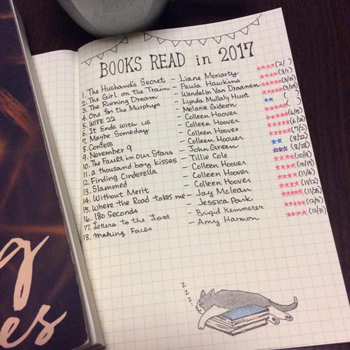 BOOKS READ in 2017
1. The Husband's Secret - Liane Moriarty
2. The Girl on the Train - Paula Hawkins
3. The Running Dream - Wendelin Van Draanen
4. One for the Murphys - Lynda Mullaly Hunt
5. WIFE 22 - Melanie Gideon
6. It Ends with us - Colleen Hoover
7. Maybe Someday - Colleen Hoover
8. Confess - Colleen Hoover
9. November 9 - Colleen Hoover
10. The Fault in Our Stars - John Green
11. a thousand boy kisses - Tillie Cole
12. Finding Cinderella - Colleen Hoover
13. Slammed - Colleen Hoover
14. Without Merit - Colleen Hoover
15. Where the Road takes me - Jay McLean
16. 180 Seconds - Jessica Park
17. Letters to the Lost - Brigid Kemmerer
18. Making Faces - Amy Harmon
z z z
g
es